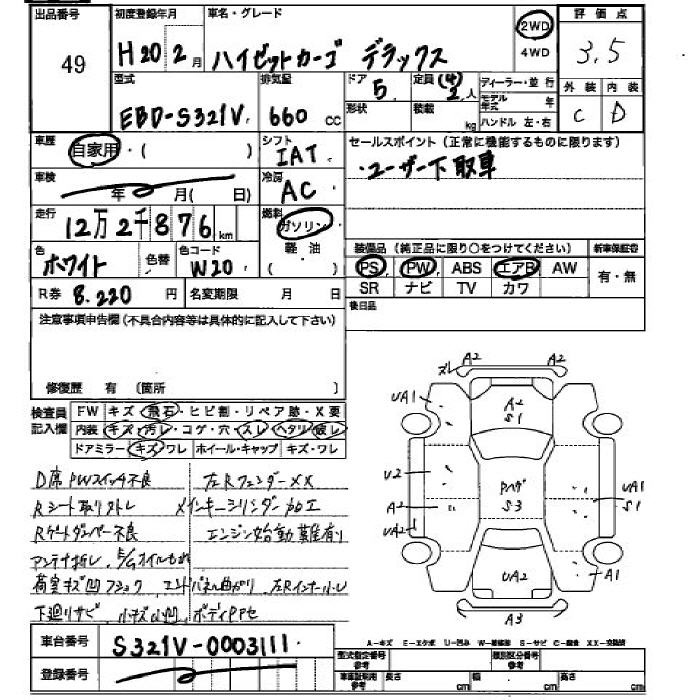 出品番号 初度登録年月 車名・グレード 2WD 評価点
49 H20 2月 ハイゼットカーゴ デラックス 4WD 3,5
型式 排気量 ドア 定員 (4) ディーラー・並行 外装 内装
EBD-S321V 660 cc 5 2人 モデル年式 年
形状 積載 kg ハンドル 左・右 C D
車歴 自家用・( ) シフト IAT セールスポイント (正常に機能するものに限ります)
車検 年 月( 日) 冷房 AC ・ユーザー下取車
走行 12万2千876km 燃料 ガソリン
色 ホワイト 色替 色コード W20 軽・油 ( ) 装備品 (純正品に限り〇をつけてください) 新車保証書
PS PW ABS エアB AW 有・無
R券 8.220円 名変期限 月 日 SR ナビ TV カワ
注意事項申告欄(不具合内容等は具体的に記入して下さい) 後日品
修復歴 有 (箇所 )
検査員記入欄 FW キズ・飛石・ヒビ割・リペア跡・X要
内装 キズ・汚レ・コゲ・穴・スレ・ヘタリ・破レ
ドアミラー キズ・ワレ ホイール・キャップ キズ・ワレ
D席PWスイッチ不良 左RフェンダーXX
Rシート取りストレ メインキーシリンダー加工
Rゲートダンパー不良 エンジン始動難有り
アンテナ折レ
荷室キズ凹 エンドパネル曲がり
下廻りサビ 小キズ小凹
A2 A2
ズレ
UA1 A2 S1
U2 Pハゲ UA1
A2 S3 S1
UA2
UA2 A1
A3
車台番号 S321V-0003111
登録番号
A-キズ E-エクボ U-凹み W-補修跡 S-サビ C-腐食 XX-交換済
型式指定番号 参考 類別区分番号 参考
車庫証明用 参考 長さ cm 幅 cm 高さ cm